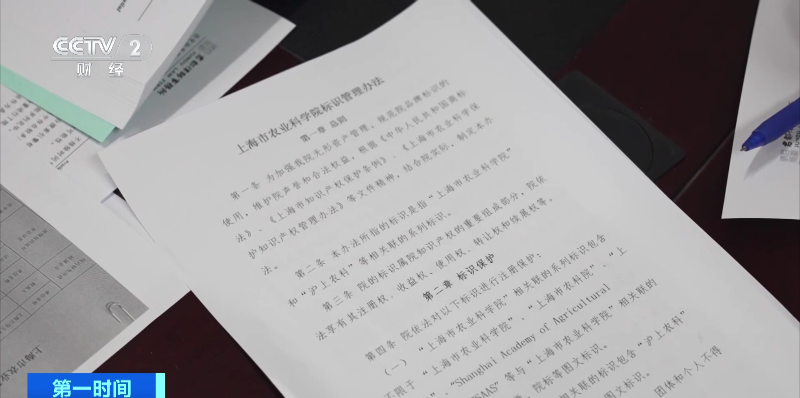 CCTV 2
财经
上海市农业科学院标识管理办法
第一章 总则
第一条 为加强我院无形资产管理，规范院品牌标识的
使用，维护院声誉和合法权益，根据《中华人民共和国商标
法》、《上海市知识产权保护条例》、《上海市农业科学院保
护知识产权管理办法》等文件精神，结合院实际，制定本办
法。
第二条 本办法所指的标识是指“上海市农业科学院”
和“沪上农科”等相关联的系列标识。
第三条 院的标识属院知识产权的重要组成部分，院依
法享有其注册权、收益权、使用权、转让权和续展权等。
第二章 标识保护
第四条 院依法对以下标识进行注册保护：
（一）“上海市农业科学院”相关联的系列标识包含
不限于“上海市农业科学院”、“上海市农科院”、“上
”、“Shanghai Academy of Agricultural
SAAS”等与“上海市农业科学院”相关联的
、院标等图文标识。
相关联的标识包含“沪上农科”
图文标识。
团体和个人不得
第一时间